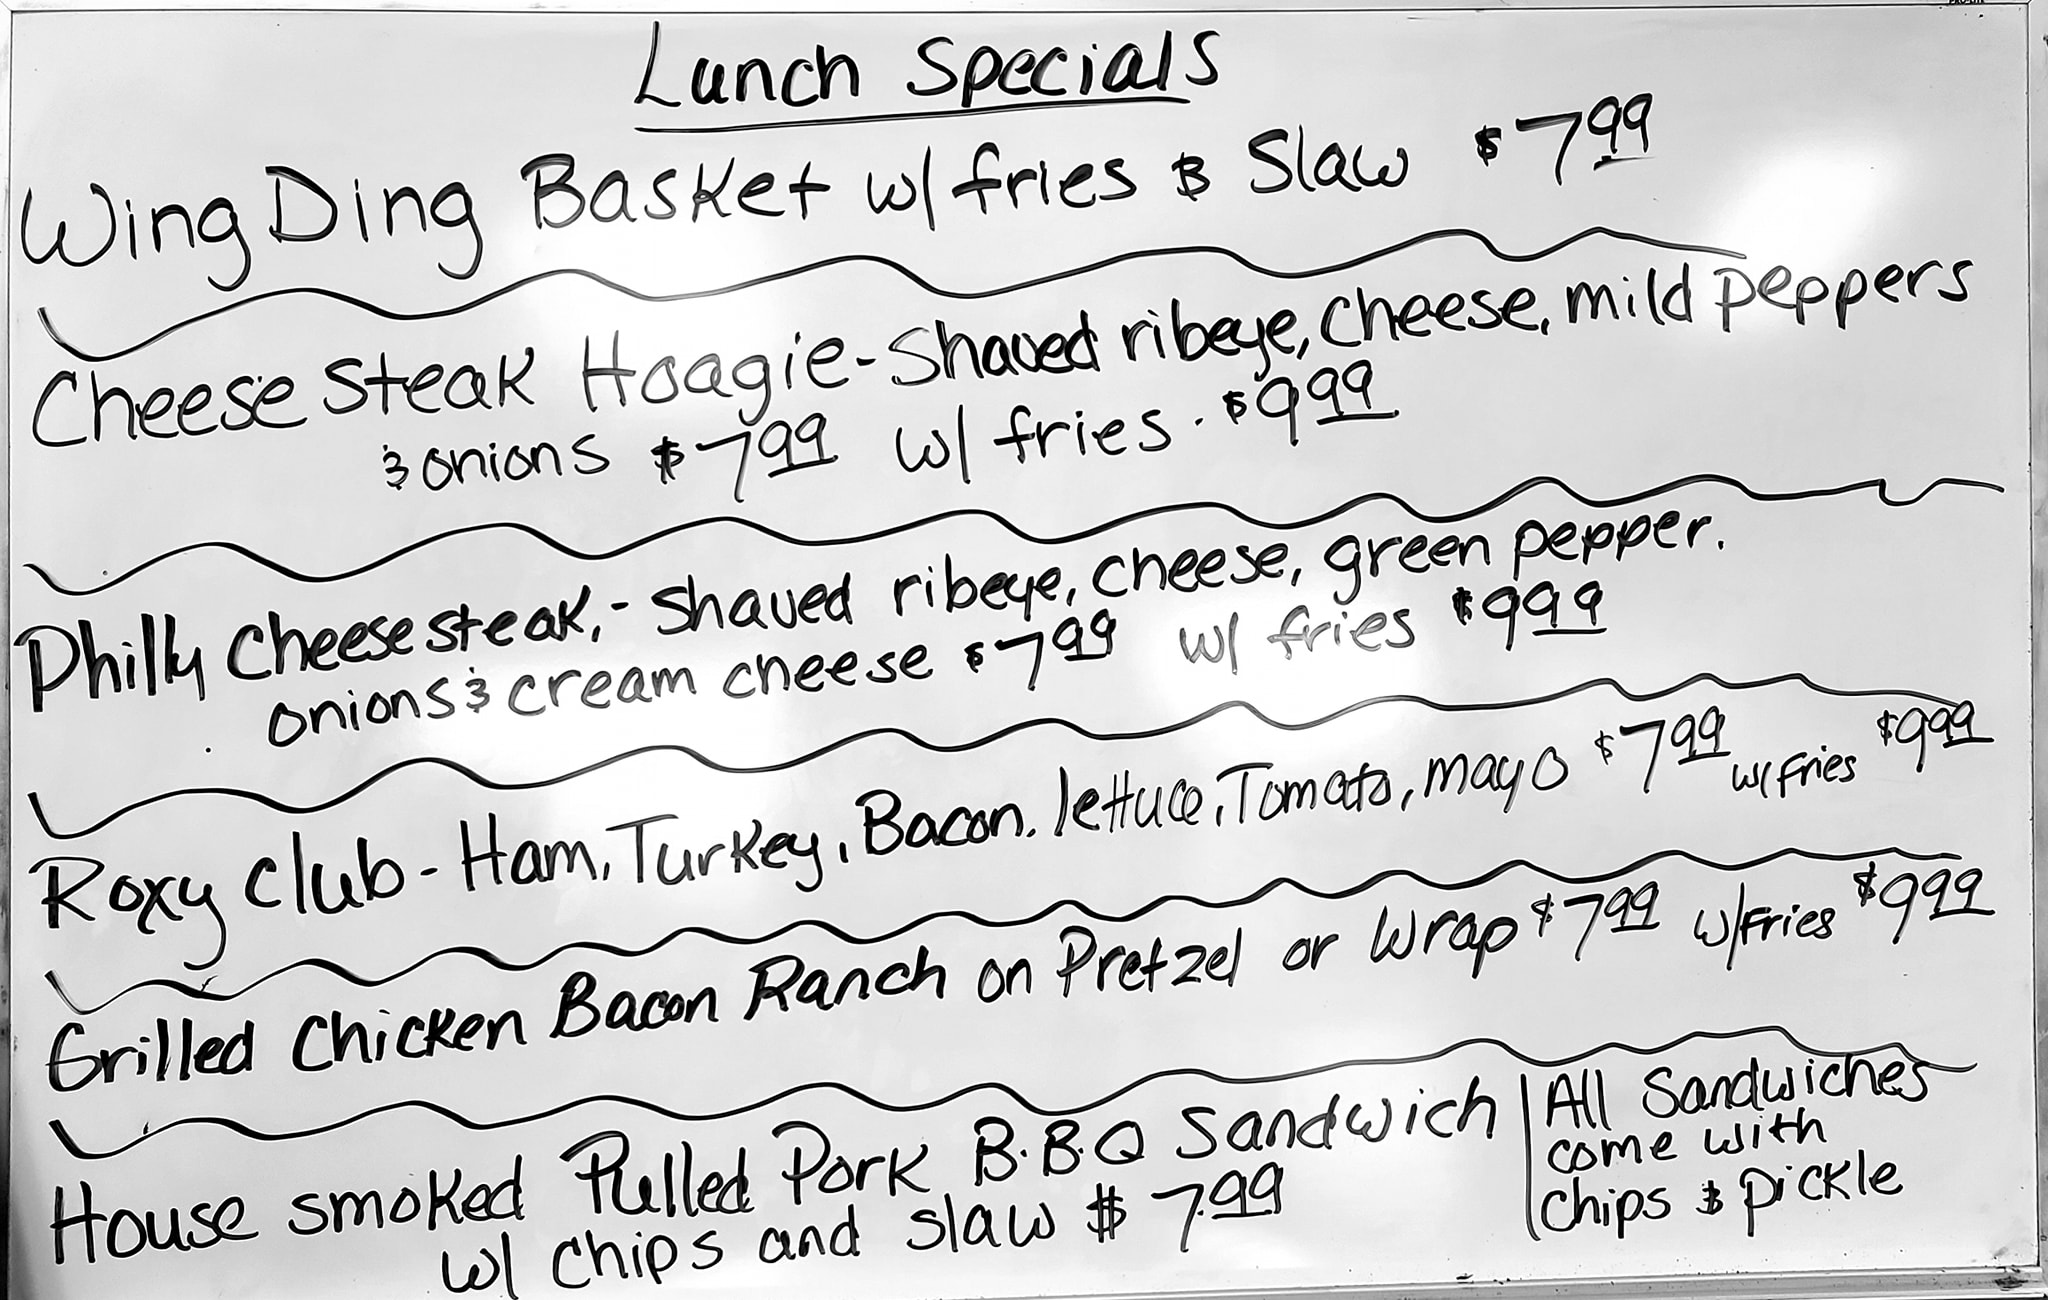 Lunch Specials
Wing Ding Basket w/ fries & Slaw $7.99
Cheese Steak Hoagie - Shaved ribeye, cheese, mild peppers
& onions $7.99 w/ fries. $9.99
Philly Cheesesteak, - Shaved ribeye, cheese, green pepper.
onions & cream cheese $7.99 w/ fries $9.99
Roxy Club - Ham, Turkey, Bacon. lettuce, Tomato, mayo $7.99 w/ fries $9.99
Grilled Chicken Bacon Ranch on Pretzel or Wrap $7.99 w/ Fries $9.99
House smoked Pulled Pork B.B.Q Sandwich
w/ chips and slaw $7.99
All Sandwiches
come with
chips & pickle